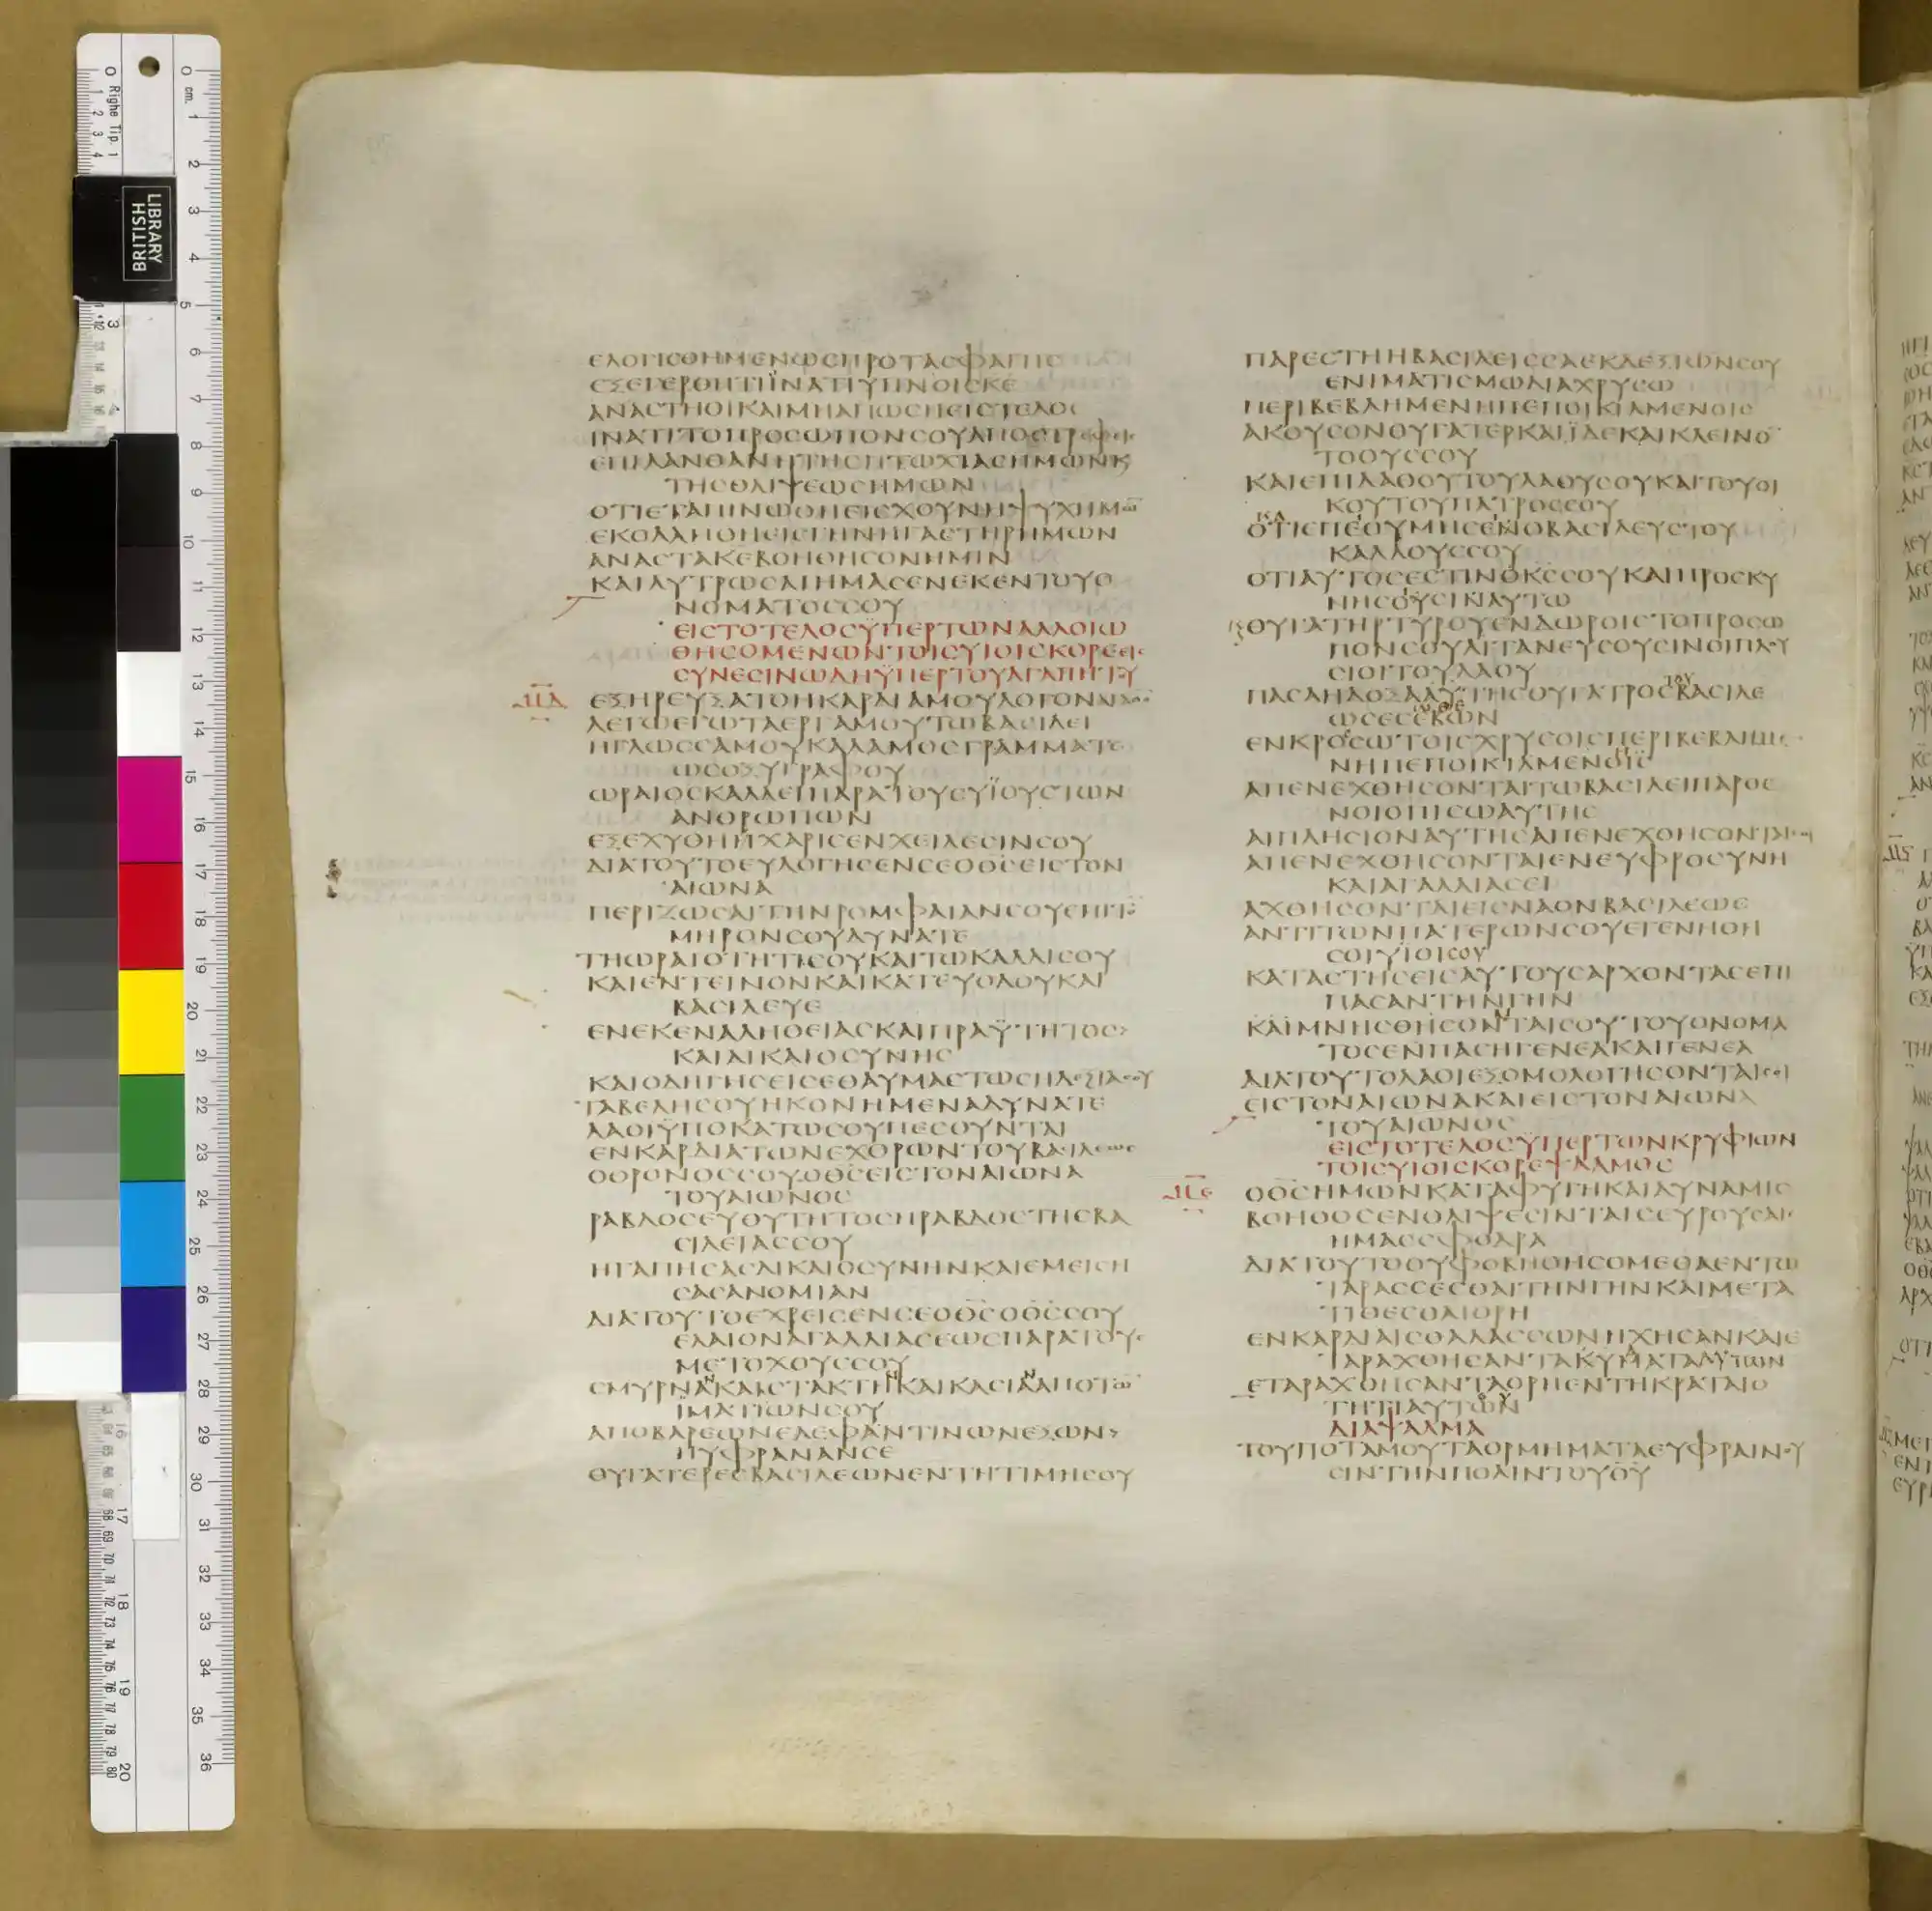 ΕΛΟΓΙCΘΗΜΕΝΩCΠΡΟΤΑCΦΑΓΗC
ΕΞΕΓΕΡΘΗΤΙΪΝΑΤΙΥΠΝΟΙCΚΕ
ΑΝΑCΤΗΘΙΚΑΙΜΗΑΠΩCΗΕΙCΤΕΛΟC
ΙΝΑΤΙΤΟΠΡΟCΩΠΟΝCΟΥΑΠΟCΤΡΕΦΕΙC
ΕΠΙΛΑΝΘΑΝΗΤΗCΠΤΩΧΙΑCΗΜΩΝΚ
ΤΗCΘΛΙΨΕΩCΗΜΩΝ
ΟΤΙΕΤΑΠΙΝΩΘΗΕΙCΧΟΥΝΗΨΥΧΗΗΜΩ
ΕΚΟΛΛΗΘΗΕΙCΓΗΝΗΓΑCΤΗΡΗΜΩΝ
ΑΝΑCΤΑΚΕΒΟΗΘΗCΟΝΗΜΙΝ
ΚΑΙΛΥΤΡΩCΑΙΗΜΑCΕΝΕΚΕΝΤΟΥΟ
ΝΟΜΑΤΟCCΟΥ
ΕΙCΤΟΤΕΛΟCΫΠΕΡΤΩΝΑΛΛΟΙΩ
ΘΗCΟΜΕΝΩΝΤΟΙCΥΙΟΙCΚΟΡΕΕΙC
CΥΝΕCΙΝΩΔΗΫΠΕΡΤΟΥΑΓΑΠΗΤΟΥ
ΜΔ
ΕΞΗΡΕΥΞΑΤΟΗΚΑΡΔΙΑΜΟΥΛΟΓΟΝΑΓΑΘΟ
ΛΕΓΩΕΓΩΤΑΕΡΓΑΜΟΥΤΩΒΑCΙΛΕΙ
ΗΓΛΩCCΑΜΟΥΚΑΛΑΜΟCΓΡΑΜΜΑΤΕ
ΩCΟΞΥΓΡΑΦΟΥ
ΩΡΑΙΟCΚΑΛΛΕΙΠΑΡΑΤΟΥCΥΪΟΥCΤΩΝ
ΑΝΘΡΩΠΩΝ
ΕΞΕΧΥΘΗΗΧΑΡΙCΕΝΧΕΙΛΕCΙΝCΟΥ
ΔΙΑΤΟΥΤΟΕΥΛΟΓΗCΕΝCΕΟΘCΕΙCΤΟΝ
ΑΙΩΝΑ
ΠΕΡΙΖΩCΑΙΤΗΝΡΟΜΦΑΙΑΝCΟΥΕΠΙΤΟ
ΜΗΡΟΝCΟΥΔΥΝΑΤΕ
ΤΗΩΡΑΙΟΤΗΤΙCΟΥΚΑΙΤΩΚΑΛΛΙCΟΥ
ΚΑΙΕΝΤΕΙΝΟΝΚΑΙΚΑΤΕΥΟΔΟΥΚΑΙ
ΒΑCΙΛΕΥΕ
ΕΝΕΚΕΝΑΛΗΘΕΙΑCΚΑΙΠΡΑΫΤΗΤΟC
ΚΑΙΔΙΚΑΙΟCΥΝΗC
ΚΑΙΟΔΗΓΗCΕΙCΕΘΑΥΜΑCΤΩCΗΔΕΞΙΑCΟΥ
ΤΑΒΕΛΗCΟΥΗΚΟΝΗΜΕΝΑΔΥΝΑΤΕ
ΛΑΟΙΫΠΟΚΑΤΩCΟΥΠΕCΟΥΝΤΑΙ
ΕΝΚΑΡΔΙΑΤΩΝΕΧΘΡΩΝΤΟΥΒΑCΙΛΕΩC
ΟΘΡΟΝΟCCΟΥΟΘCΕΙCΤΟΝΑΙΩΝΑ
ΤΟΥΑΙΩΝΟC
ΡΑΒΔΟCΕΥΘΥΤΗΤΟCΗΡΑΒΔΟCΤΗCΒΑ
CΙΛΕΙΑCCΟΥ
ΗΓΑΠΗCΑCΔΙΚΑΙΟCΥΝΗΝΚΑΙΕΜΕΙCΗ
CΑCΑΝΟΜΙΑΝ
ΔΙΑΤΟΥΤΟΕΧΡΕΙCΕΝCΕΟΘCΟΘCCΟΥ
ΕΛΑΙΟΝΑΓΑΛΛΙΑCΕΩCΠΑΡΑΤΟΥC
ΜΕΤΟΧΟΥCCΟΥ
CΜΥΡΝΑΚΑΙCΤΑΚΤΗΚΑΙΚΑCΙΑΑΠΟΤΩ
ΙΜΑΤΙΩΝCΟΥ
ΑΠΟΒΑΡΕΩΝΕΛΕΦΑΝΤΙΝΩΝΕΞΩΝ
ΗΥΦΡΑΝΑΝCΕ
ΘΥΓΑΤΕΡΕCΒΑCΙΛΕΩΝΕΝΤΗΤΙΜΗCΟΥ
ΠΑΡΕCΤΗΗΒΑCΙΛΕΙCCΑΕΚΔΕΞΙΩΝCΟΥ
ΕΝΙΜΑΤΙCΜΩΔΙΑΧΡΥCΩ
ΠΕΡΙΒΕΒΛΗΜΕΝΗΠΕΠΟΙΚΙΛΜΕΝΟΙC
ΑΚΟΥCΟΝΘΥΓΑΤΕΡΚΑΙΪΔΕΚΑΙΚΛΕΙΝΟ
ΤΟΟΥCCΟΥ
ΚΑΙΕΠΙΛΑΘΟΥΤΟΥΛΑΟΥCΟΥΚΑΙΤΟΥΟΙ
ΚΟΥΤΟΥΠΑΤΡΟCCΟΥ
ΟΤΙΕΠΕΘΥΜΗCΕΝΟΒΑCΙΛΕΥCΤΟΥ
ΚΑΛΛΟΥCCΟΥ
ΟΤΙΑΥΤΟCΕCΤΙΝΟΚCCΟΥΚΑΙΠΡΟCΚΥ
ΝΗCΟΥCΙΝΑΥΤΩ
ΘΥΓΑΤΗΡΤΥΡΟΥΕΝΔΩΡΟΙCΤΟΠΡΟCΩ
ΠΟΝCΟΥΛΙΤΑΝΕΥCΟΥCΙΝΟΙΠΛΟΥ
CΙΟΙΤΟΥΛΑΟΥ
ΠΑCΑΗΔΟΞΑΑΥΤΗCΘΥΓΑΤΡΟCΒΑCΙΛΕ
ΩCΕCΕΒΩΝ
ΕΝΚΡΟCΩΤΟΙCΧΡΥCΟΙCΠΕΡΙΒΕΒΛΗΜΕ
ΝΗΠΕΠΟΙΚΙΛΜΕΝΟΙC
ΑΠΕΝΕΧΘΗCΟΝΤΑΙΤΩΒΑCΙΛΕΙΠΑΡΘΕ
ΝΟΙΟΠΙCΩΑΥΤΗC
ΑΙΠΛΗCΙΟΝΑΥΤΗCΑΠΕΝΕΧΘΗCΟΝΤΑΙCΟΙ
ΑΠΕΝΕΧΘΗCΟΝΤΑΙΕΝΕΥΦΡΟCΥΝΗ
ΚΑΙΑΓΑΛΛΙΑCΕΙ
ΑΧΘΗCΟΝΤΑΙΕΙCΝΑΟΝΒΑCΙΛΕΩC
ΑΝΤΙΤΩΝΠΑΤΕΡΩΝCΟΥΕΓΕΝΗΘΗ
CΟΙΥΙΟΙCΟΥ
ΚΑΤΑCΤΗCΕΙCΑΥΤΟΥCΑΡΧΟΝΤΑCΕΠΙ
ΠΑCΑΝΤΗΝΓΗΝ
ΚΑΙΜΝΗCΘΗCΟΝΤΑΙCΟΥΤΟΥΟΝΟΜΑ
ΤΟCΕΝΠΑCΗΓΕΝΕΑΚΑΙΓΕΝΕΑ
ΔΙΑΤΟΥΤΟΛΑΟΙΕΞΟΜΟΛΟΓΗCΟΝΤΑΙCΟΙ
ΕΙCΤΟΝΑΙΩΝΑΚΑΙΕΙCΤΟΝΑΙΩΝΑ
ΤΟΥΑΙΩΝΟC
ΕΙCΤΟΤΕΛΟCΫΠΕΡΤΩΝΚΡΥΦΙΩΝ
ΤΟΙCΥΙΟΙCΚΟΡΕΨΑΛΜΟC
ΜΕ
ΟΘCΗΜΩΝΚΑΤΑΦΥΓΗΚΑΙΔΥΝΑΜΙC
ΒΟΗΘΟCΕΝΘΛΙΨΕCΙΝΤΑΙCΕΥΡΟΥCΑΙC
ΗΜΑCCΦΟΔΡΑ
ΔΙΑΤΟΥΤΟΟΥΦΟΒΗΘΗCΟΜΕΘΑΕΝΤΩ
ΤΑΡΑCCΕCΘΑΙΤΗΝΓΗΝΚΑΙΜΕΤΑ
ΤΙΘΕCΘΑΙΟΡΗ
ΕΝΚΑΡΔΙΑΙCΘΑΛΑCCΩΝΗΧΗCΑΝΚΑΙΕ
ΤΑΡΑΧΘΗCΑΝΤΑΚΥΜΑΤΑΑΥΤΩΝ
ΕΤΑΡΑΧΘΗCΑΝΤΑΟΡΗΕΝΤΗΚΡΑΤΑΙΟ
ΤΗΤΙΑΥΤΩΝ
ΔΙΑΨΑΛΜΑ
ΤΟΥΠΟΤΑΜΟΥΤΑΟΡΜΗΜΑΤΑΕΥΦΡΑΙΝΟΥ
CΙΝΤΗΝΠΟΛΙΝΤΟΥΘΥ
BRITISH
LIBRARY